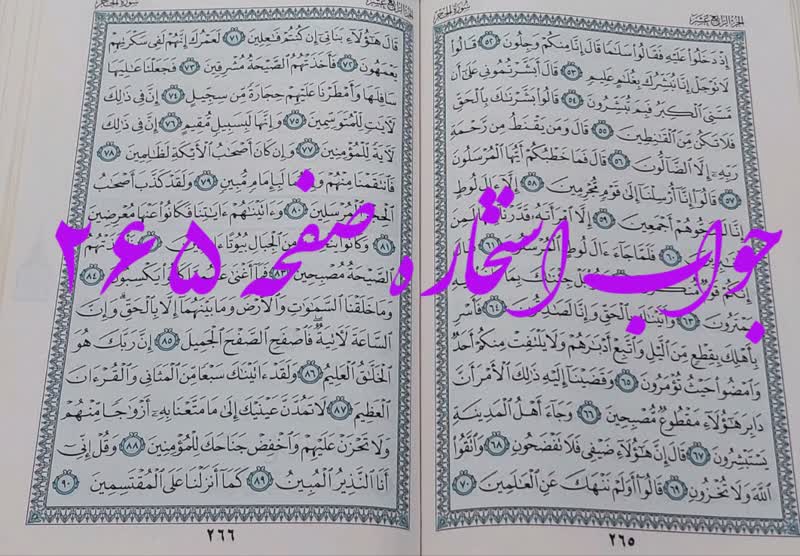 الجزء الرابع عشر سورة الحجر
إِذْ دَخَلُوا۟ عَلَيْهِ فَقَالُوا۟ سَلَٰمًا قَالَ إِنَّا مِنكُمْ وَجِلُونَ ٥٢ قَالُوا۟
لَا تَوْجَلْ إِنَّا نُبَشِّرُكَ بِغُلَٰمٍ عَلِيمٍ ٥٣ قَالَ أَبَشَّرْتُمُونِى عَلَىٰٓ أَن
مَّسَّنِىَ ٱلْكِبَرُ فَبِمَ تُبَشِّرُونَ ٥٤ قَالُوا۟ بَشَّرْنَٰكَ بِٱلْحَقِّ
فَلَا تَكُن مِّنَ ٱلْقَٰنِطِينَ ٥٥ قَالَ وَمَن يَقْنَطُ مِن رَّحْمَةِ
رَبِّهِۦٓ إِلَّا ٱلضَّآلُّونَ ٥٦ قَالَ فَمَا خَطْبُكُمْ أَيُّهَا ٱلْمُرْسَلُونَ
٥٧ قَالُوٓا۟ إِنَّآ أُرْسِلْنَآ إِلَىٰ قَوْمٍ مُّجْرِمِينَ ٥٨ إِلَّآ ءَالَ لُوطٍ
إِنَّا لَمُنَجُّوهُمْ أَجْمَعِينَ ٥٩ إِلَّا ٱمْرَأَتَهُۥ قَدَّرْنَآ لَمِنَ
٦٠ فَلَمَّا جَآءَ ءَالَ لُوطٍ ٱلْمُرْسَلُونَ ٦١
إِنَّكُمْ قَوْمٌ جِئْنَٰكَ بِمَا
يَمْتَرُونَ ٦٣ وَأَتَيْنَٰكَ بِٱلْحَقِّ وَإِنَّا لَصَٰدِقُونَ ٦٤ فَأَسْرِ
بِأَهْلِكَ بِقِطْعٍ مِّنَ ٱلَّيْلِ وَٱتَّبِعْ أَدْبَٰرَهُمْ وَلَا يَلْتَفِتْ مِنكُمْ أَحَدٌ
وَٱمْضُوا۟ حَيْثُ تُؤْمَرُونَ ٦٥ وَقَضَيْنَآ إِلَيْهِ ذَٰلِكَ ٱلْأَمْرَ أَنَّ
دَابِرَ هَٰٓؤُلَآءِ مَقْطُوعٌ مُّصْبِحِينَ ٦٦ وَجَآءَ أَهْلُ ٱلْمَدِينَةِ
يَسْتَبْشِرُونَ ٦٧ قَالَ إِنَّ هَٰٓؤُلَآءِ ضَيْفِى فَلَا تَفْضَحُونِ ٦٨ وَٱتَّقُوا۟
ٱللَّهَ وَلَا تُخْزُونِ ٦٩ قَالُوٓا۟ أَوَلَمْ نَنْهَكَ عَنِ ٱلْعَٰلَمِينَ ٧٠
٢٦٥
الجزء الرابع عشر سورة الحجر
قَالَ هَٰٓؤُلَآءِ بَنَاتِىٓ إِن كُنتُمْ فَٰعِلِينَ ٧١ لَعَمْرُكَ إِنَّهُمْ لَفِى سَكْرَتِهِمْ
يَعْمَهُونَ ٧٢ فَأَخَذَتْهُمُ ٱلصَّيْحَةُ مُشْرِقِينَ ٧٣ فَجَعَلْنَا عَٰلِيَهَا
سَافِلَهَا وَأَمْطَرْنَا عَلَيْهِمْ حِجَارَةً مِّن سِجِّيلٍ ٧٤ إِنَّ فِى ذَٰلِكَ
لَءَايَٰتٍ لِّلْمُتَوَسِّمِينَ ٧٥ وَإِنَّهَا لَبِسَبِيلٍ مُّقِيمٍ ٧٦ إِنَّ فِى ذَٰلِكَ
لَءَايَةً لِّلْمُؤْمِنِينَ ٧٧ وَإِن كَانَ أَصْحَٰبُ ٱلْأَيْكَةِ لَظَٰلِمِينَ ٧٨
فَٱنتَقَمْنَا مِنْهُمْ وَإِنَّهُمَا لَبِإِمَامٍ مُّبِينٍ ٧٩ وَلَقَدْ كَذَّبَ أَصْحَٰبُ
ٱلْحِجْرِ ٱلْمُرْسَلِينَ ٨٠ وَءَاتَيْنَٰهُمْ ءَايَٰتِنَا فَكَانُوا۟ عَنْهَا مُعْرِضِينَ
٨١ وَكَانُوا۟ مِنَ ٱلْجِبَالِ بُيُوتًا
ٱلصَّيْحَةُ مُصْبِحِينَ ٨٣ فَمَآ أَغْنَىٰ عَنْهُم مَّا كَانُوا۟ يَكْسِبُونَ ٨٤
وَمَا خَلَقْنَا ٱلسَّمَٰوَٰتِ وَٱلْأَرْضَ وَمَا بَيْنَهُمَآ إِلَّا بِٱلْحَقِّ وَإِنَّ
ٱلسَّاعَةَ لَءَاتِيَةٌ فَٱصْفَحِ ٱلصَّفْحَ ٱلْجَمِيلَ ٨٥ إِنَّ رَبَّكَ هُوَ
ٱلْخَلَّٰقُ ٱلْعَلِيمُ ٨٦ وَلَقَدْ ءَاتَيْنَٰكَ سَبْعًا مِّنَ ٱلْمَثَانِى وَٱلْقُرْءَانَ
ٱلْعَظِيمَ ٨٧ لَا تَمُدَّنَّ عَيْنَيْكَ إِلَىٰ مَا مَتَّعْنَا بِهِۦٓ أَزْوَٰجًا مِّنْهُمْ
وَلَا تَحْزَنْ عَلَيْهِمْ وَٱخْفِضْ جَنَاحَكَ لِلْمُؤْمِنِينَ ٨٨ وَقُلْ إِنِّىٓ
أَنَا ٱلنَّذِيرُ ٱلْمُبِينُ ٨٩ كَمَآ أَنزَلْنَا عَلَى ٱلْمُقْتَسِمِينَ ٩٠
٢٦٦
جواب استخاره صفحه ۲۶۵